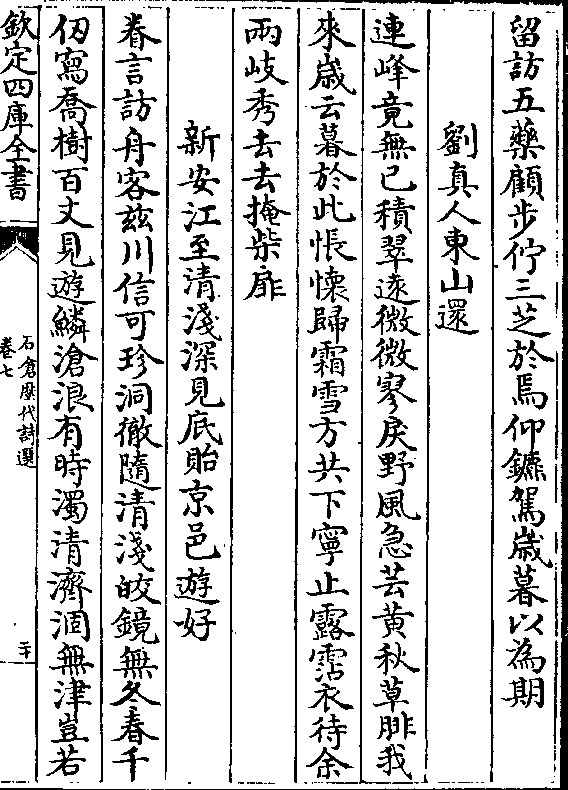 留訪五藥顧步佇三芝於焉仰鑣駕歲暮以為期
劉真人東山還
連峰竟無已積翠遠微微寥戾野風急芸黃秋草腓我
來歲云暮於此悵懷歸霜雪方共下寧止露霑衣待余
兩岐秀去去掩柴扉
新安江至清淺深見底貽京邑遊好
眷言訪舟客茲川信可珍洞徹隨清淺皎鏡無冬春千
仞寫喬樹百丈見遊鱗滄浪有時濁清濟涸無津豈若
欽定四庫全書
石倉歷代詩選
卷七
二十